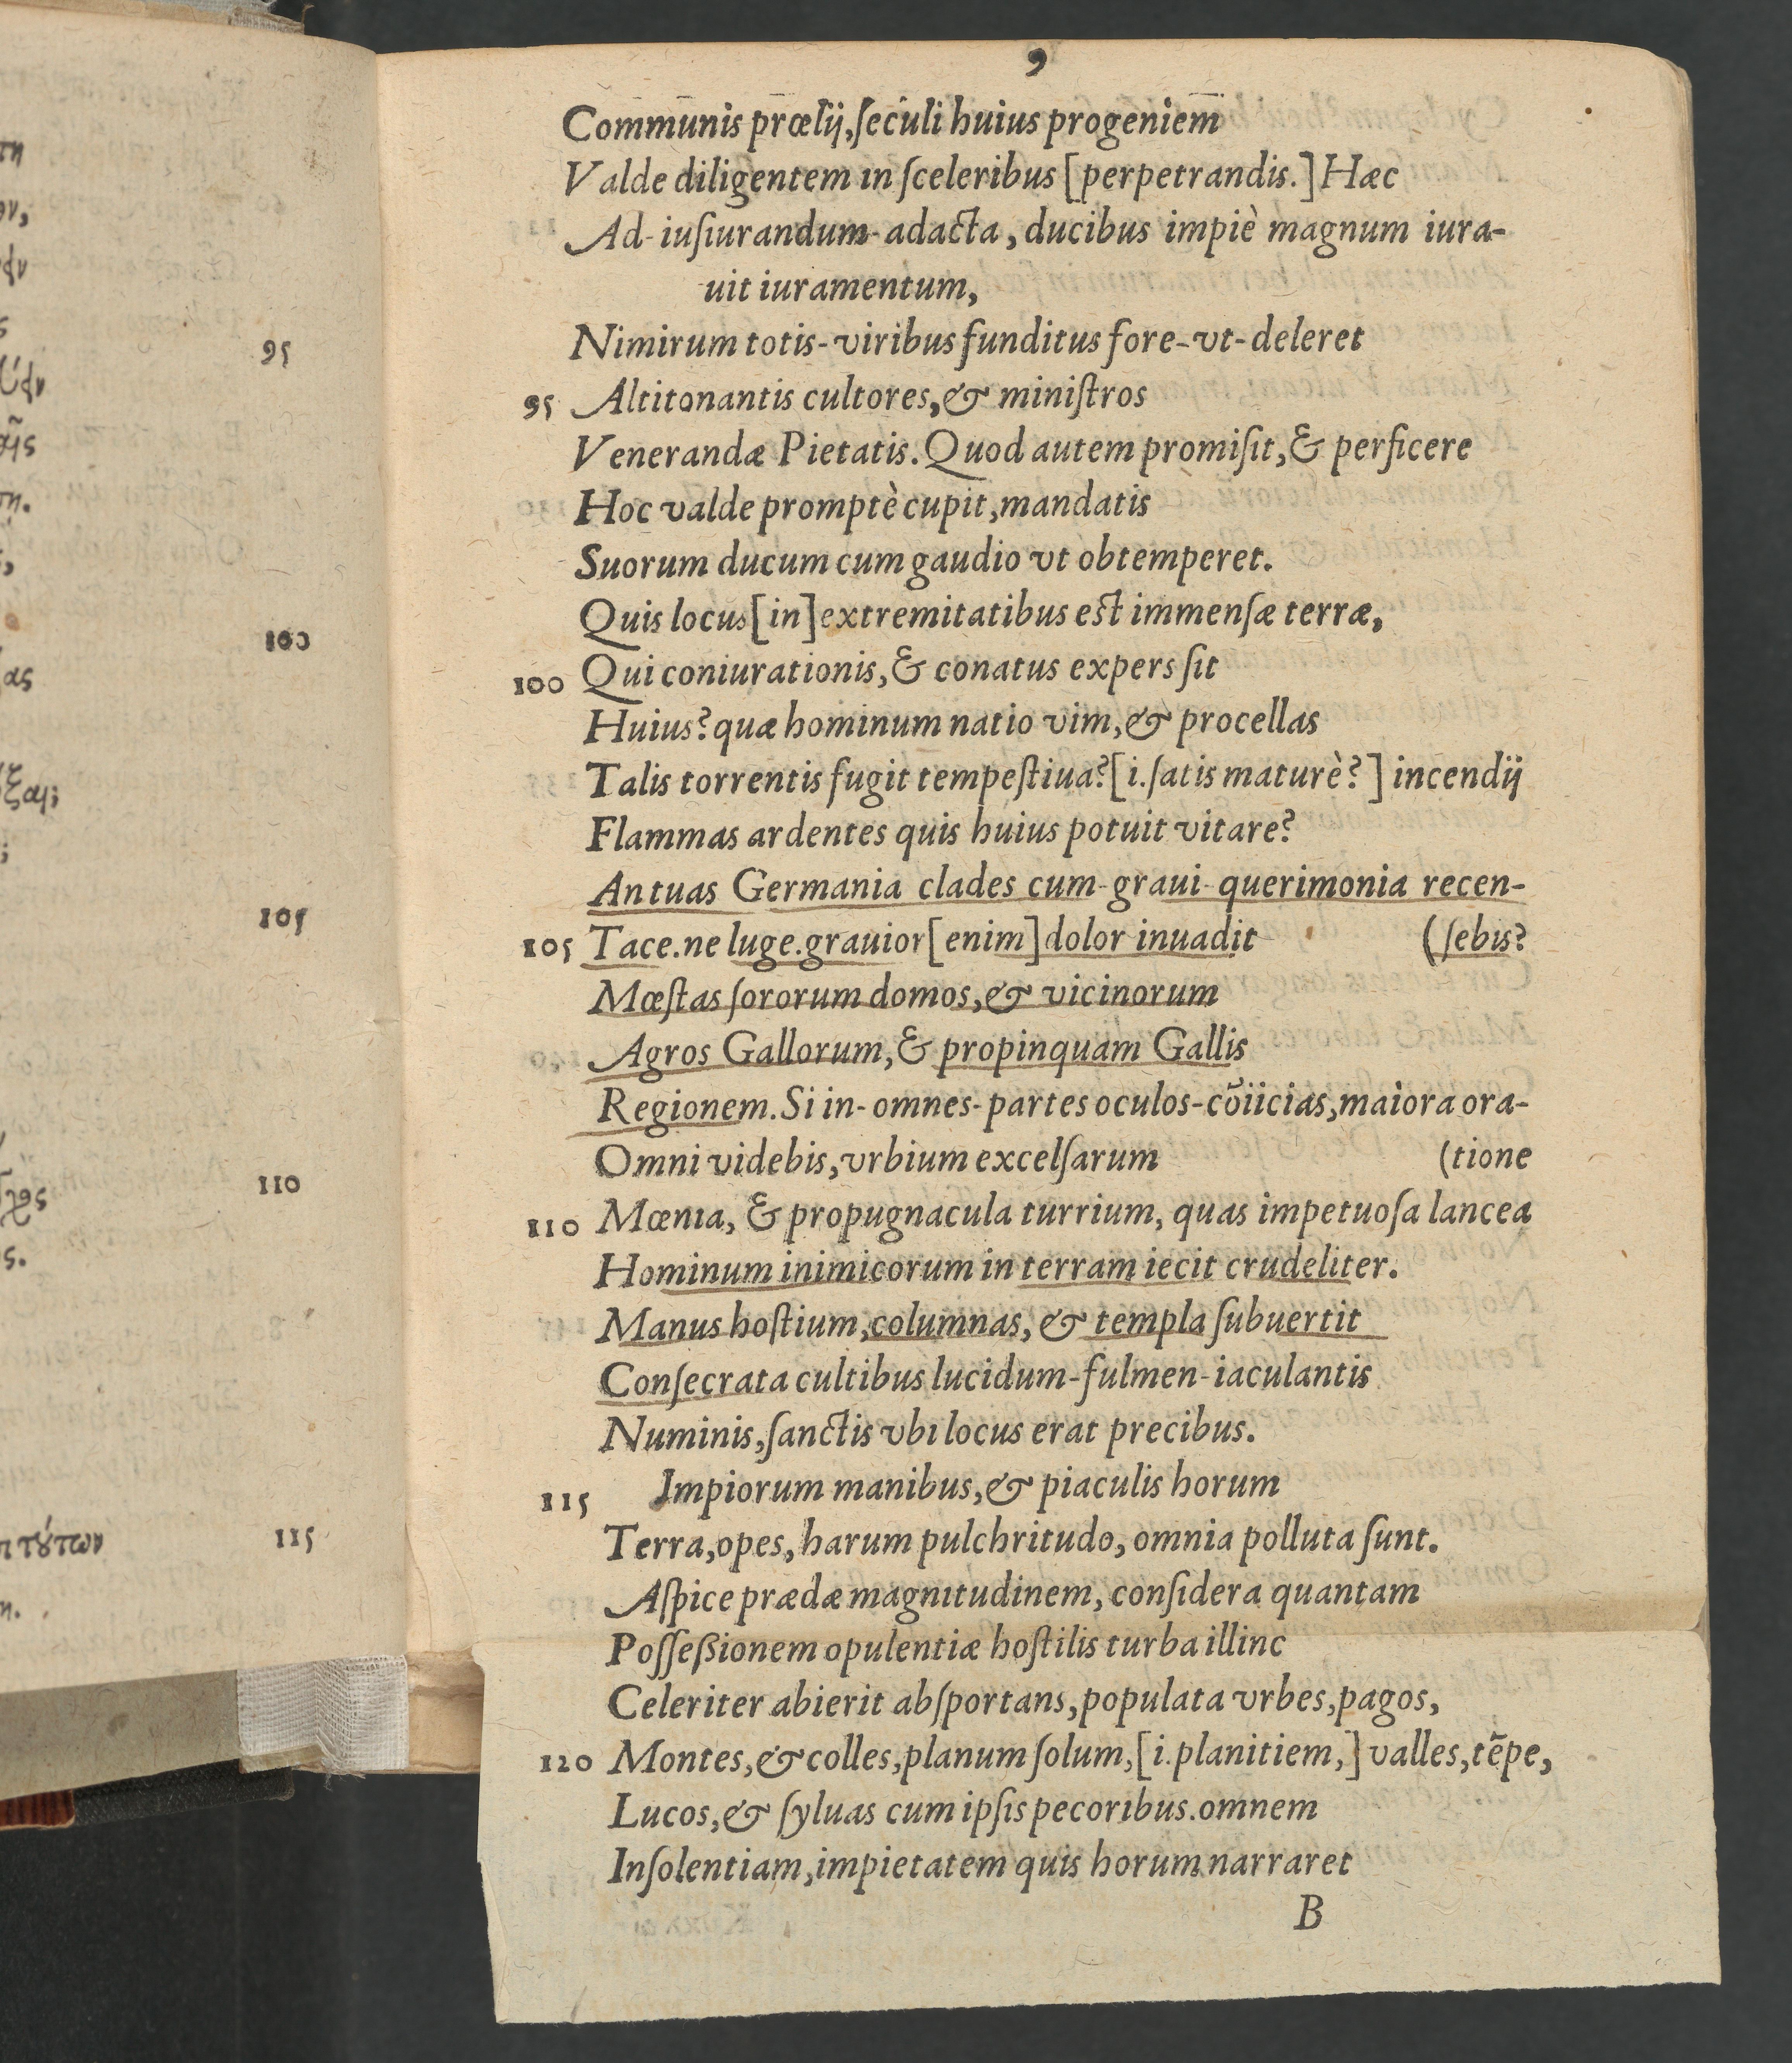 9
Communis prœlij, ſeculi huius progeniem
Valde diligentem in ſceleribus [perpetrandis.] Hæc
Ad-iuſiurandum-adacta, ducibus impiè magnum iura-
uit iuramentum,
Nimirum totis-viribus funditus fore-vt-deleret
95 Altitonantis cultores, & miniſtros
Venerandæ Pietatis. Quod autem promiſit, & perficere
Hoc valde promptè cupit, mandatis
Suorum ducum cum gaudio vt obtemperet.
Quis locus [in] extremitatibus est immenſæ terræ,
100 Qui coniurationis, & conatus expers ſit
Huius? quæ hominum natio vim, & procellas
Talis torrentis fugit tempeſtiua? [i. ſatis maturè?] incendij
Flammas ardentes quis huius potuit vitare?
An tuas Germania clades cum-graui-querimonia recen-
105 Tace. ne luge. grauior [enim] dolor inuadit (ſebis?
Mœſtas ſororum domos, & vicinorum
Agros Gallorum, & propinquam Gallis
Regionem. Si in-omnes-partes oculos-cõiicias, maiora ora-
Omni videbis, vrbium excelſarum (tione
110 Mœnia, & propugnacula turrium, quas impetuoſa lancea
Hominum inimicorum in terram iecit crudeliter.
Manus hoſtium, columnas, & templa ſubuertit
Conſecrata cultibus lucidum-fulmen-iaculantis
Numinis, ſanctis vbi locus erat precibus.
115 Impiorum manibus, & piaculis horum
Terra, opes, harum pulchritudo, omnia polluta ſunt.
Aſpice prædæ magnitudinem, conſidera quantam
Poſſeßionem opulentiæ hoſtilis turba illinc
Celeriter abierit abſportans, populata vrbes, pagos,
120 Montes, & colles, planum ſolum, [i. planitiem,] valles, tẽpe,
Lucos, & ſyluas cum ipſis pecoribus. omnem
Inſolentiam, impietatem quis horum narraret
B
95
100
105
110
115